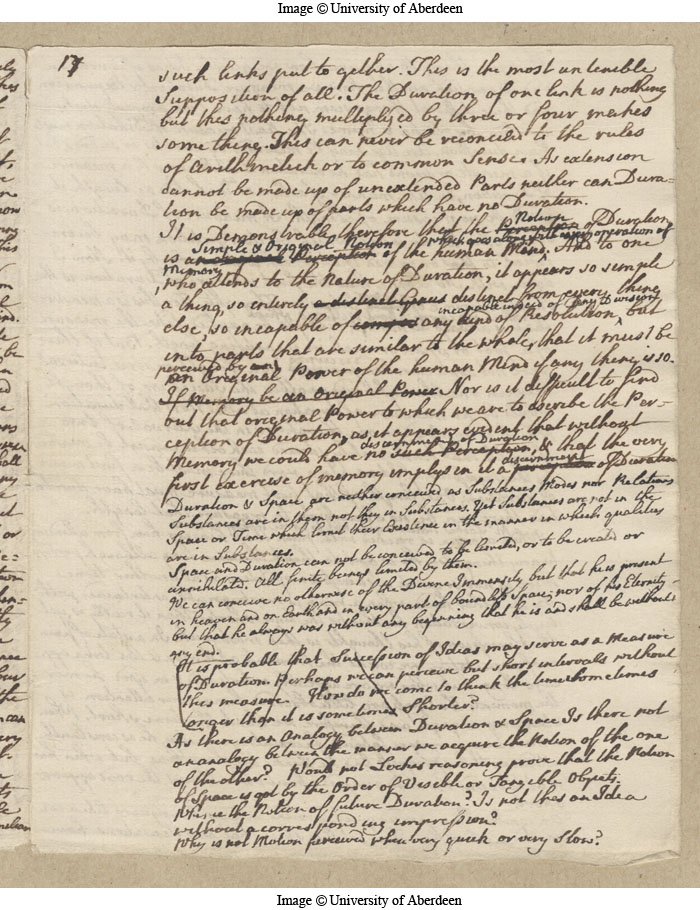 Image © University of Aberdeen
17
such links put to gether. This is the most untenible
Supposition of all. The Duration of one link is nothing
but this nothing multiplyed by three or four makes
some thing. This can never be reconciled to the rules
of Arithmetick or to common Sense. As extension
cannot be made up of unextended Parts neither can Dura-
tion be made up of parts which have no Duration.
Notion
It is Demonstrable therefore that the Perception of Duration
Simple & Original Notion which goes along with every operation of
is an original Perception of the human Mind. And to one
Memory
who attends to the Nature of Duration, it appears so simple
a thing, so entirely a distinct Genus distinct from every thing
incapable indeed of any Division
else, so incapable of any kind of Resolution, but
into parts that are similar to the whole, that it must be
perceived by
an Original Power of the human Mind if any thing is so.
If Memory be an Original Power. Nor is it difficult to find
out that original Power to which we are to ascribe the Per-
ception of Duration, as it appears evident that without
discernment of Duration
Memory we could have no such Perception, & that the very
discernment
first exercise of memory implys in it a perception of Duration
Duration & Space are neither conceived as Substances Modes nor Relations
Substances are in them not they in Substances. Yet Substances are not in the
Space or Time which limit their Existence in the manner in which qualities
are in Substances.
Space and Duration can not be conceived to be limited, or to be created or
annihilated. All finite beings limited by them.
We can conceive no otherwise of the Divine Immensity but that he is present
in heaven and on Earth and in every part of boundless Space; nor of his Eternity
but that he always was without any beginning that he is and shall be without
any end.
It is probable that Succession of Ideas may serve as a Measure
of Duration. Perhaps we can perceive but short intervals without
this measure. How do we come to think the time sometimes
longer than it is sometimes Shorter?
As there is an Analogy between Duration & Space Is there not
an analogy between the manner we acquire the Notion of the one
& of the other? Would not Lockes reasoning prove that the Notion
of Space is got by the Order of Visible or Tangible Objects.
Whence the Notion of future Duration? Is not this an Idea
without a corresponding impression?
Why is not Motion perceived when very quick or very slow?
Image © University of Aberdeen